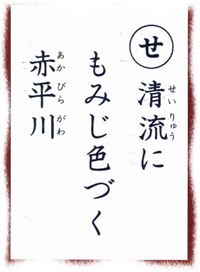 せ
清流に
せいりゅう
もみじ色づく
赤平川
あかびらがわ